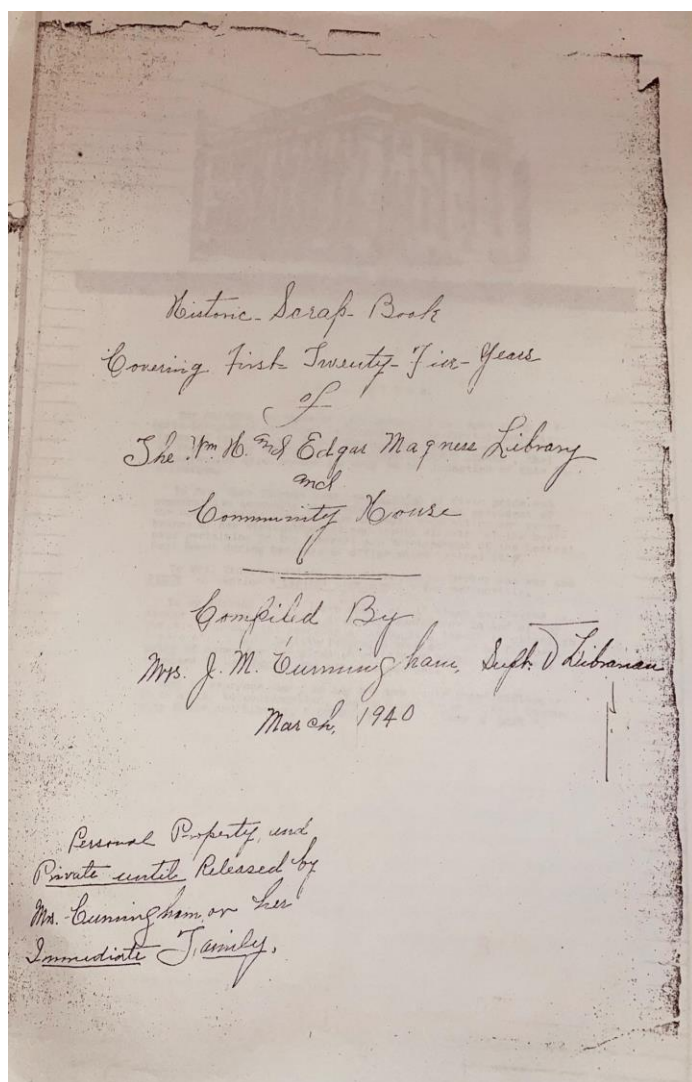 Historic - Scrap - Book
Covering First - Twenty - Five - Years
of
The Wm. H. and Edgar Magness Library
and
Community House
Compiled By
Mrs. J. M. Cunningham, Supt. & Librarian
March, 1940
Personal Property, and
Private until Released by
Mrs. Cunningham or her
Immediate Family.